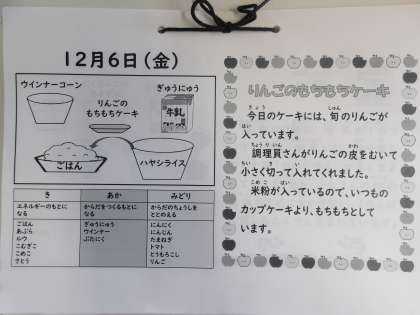 12月6日(金)
ウインナーコーン
りんごの
もちもちケーキ
ぎゅうにゅう
牛乳
ごはん
ハヤシライス
き
あか
みどり
エネルギーのもとに
なる
からだをつくるもとに
なる
からだのちょうしを
ととのえる
ごはん
あぶら
ルウ
こむぎこ
こめこ
さとう
ぎゅうにゅう
ウインナー
ぶたにく
にんにく
にんじん
たまねぎ
トマト
とうもろこし
りんご
りんごのもちもちケーキ
今日のケーキには、旬のりんごが
入っています。
調理員さんがりんごの皮をむいて
小さく切って入れてくれました。
米粉が入っているので、いつもの
カップケーキより、もちもちとして
います。